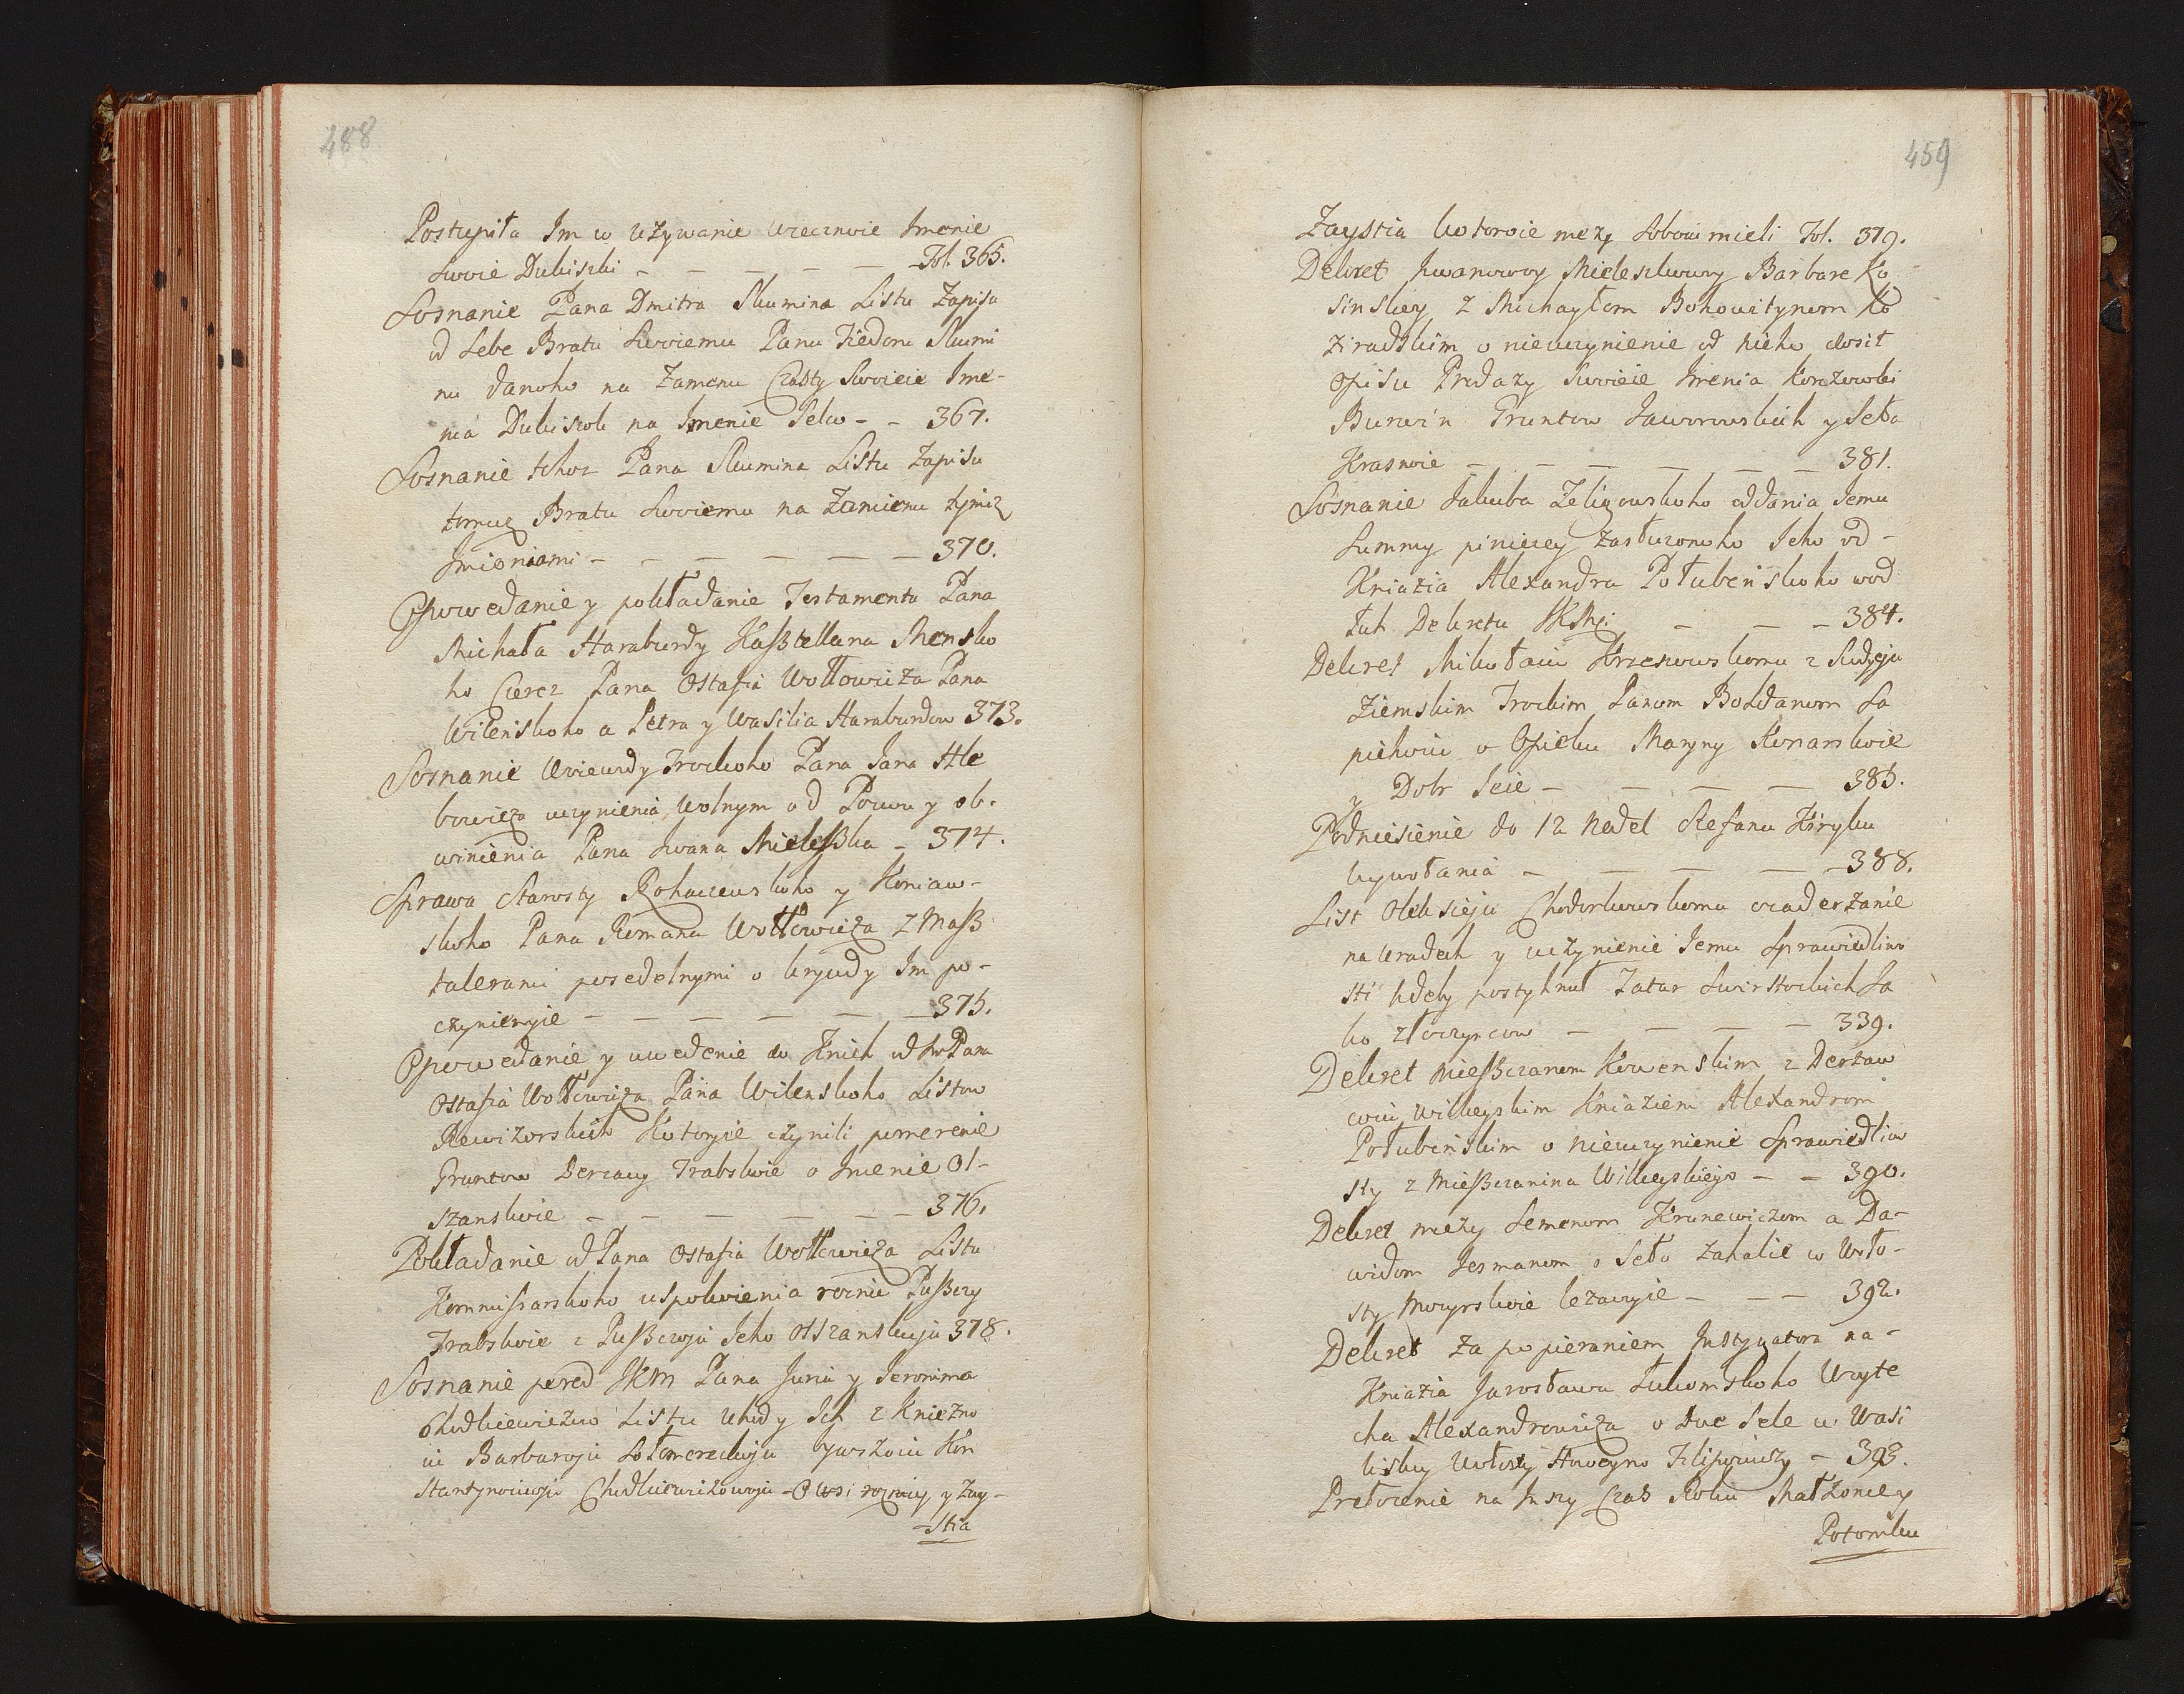 488
Postupiła Im w Używanie Wiecznoie Imenie
Swoie Dubiszki — — — — — Fol. 365.
Soznanie Pana Dmitra Skumina Listu Zapisu
od Sebe Bratu Swoiemu Panu Fiedoru Skumi
nu danoho na Zamenu Czasty Swoieie Ime-
nia Dubiszok na Imenie Selco - - 367.
Soznanie tohoz Pana Skumina Listu Zapisu
tomuz Bratu Swoiemu na Zamienu tymiz
Imieniami - - — — — — 370.
Opowedanie y pokładanie Testamentu Pana
Michała Haraburdy Kaßtellana Mensko
ho Czerez Pana Ostafia Wołłowicza Pana
Wilenskoho a Petra y Wasilia Haraburdow 373.
Soznanie Woiewody Trockoho Pana Jana Hle
bowicza uczynienia Wolnym od Pozwu y ob-
winienia Pana Iwana Mieleßka - 374.
Sprawa Starosty Rohaczewskoho y Koniaw-
skoho Pana Romana Wołłowicza z Maß
talerami posedelnymi o krywdy Im po-
czynienyie — — — — — — 375.
Opowedanie y uwedenie do Knich od Pana
Ostafia Wołłowicza Pana Wilenskoho Listow
Rewizorskich Kotoryie czynili pomerenie
Gruntow Derzawy Trabskoie o Imenie Ol-
szanskoie — — — — — — 376.
Pokładanie od Pana Ostafia Wołłowicza Listu
Kommißarskoho uspokoienia roznic Pußczy
Trabskoie z Pußczoju Jeho Olszanskuju 378.
Soznanie pered JKM Pana Juria y Jeronima
Chodkiewiczow Listu Uhody Ich z Kniezno
iu Barbaroju Sołomereckoju Jurowoiu Kon
stantynowoju Chodkiewiczowoju - O wsi roznicy y Zay-
-stia
459
Zaystia kotoroie mezy Soboiu mieli Fol. 379.
Dekret Iwanowoy Mieleszkowoy Barbare Ko
sinskiey z Michayłom Bohowitynom Ko
ziradskim o nieuczynienie od nieho dosit
Opisu Prodazy Swoieie Imenia Korczowki
Burwin Gruntow Jaworowskich y Seła
Krasnoie — — — — — — 381.
Soznanie Jakuba Zeligowskoho oddania Jemu
Summy pinieżey Zasłuzonoho Jeho od-
Kniazia Alexandra Połubenskoho wod
łuh Dekretu JKMci — — — 384.
Dekret Mikołaiu Krzeszowskomu z Sudzeju
Ziemskim Trockim Panom Bohdanom Sa
piehoiu o Opieku Maryny Konarskoie
y Dobr Jeie — — — — — 385.
Podniesienie do 12 Nedel Stefanu Kiryku
wywołania — — — — — 388.
List Oleksieju Chodorkowskomu o zaderżanie
na Uradech y uczynienie Jemu Sprawiedliwo
sti hdeby postyhnuł Tatar Swirstockich Ja
ko złoczyncow — — — — 339.
Dekret Mießczanom Kowenskim z Derzaw
coiu Wilkeyskim Kniaziem Alexandrom
Połubenskim o nieuczynienie Sprawiedliwo
sty z Mießczanina Wilkeyskiego - - 390.
Dekret mezy Semenom Krunewiczom a Da-
widom Jesmanom o Seło Zahalie w Woło-
sty Mozyrskoie lezaczyie — — — 392.
Dekret Za popieraniem Instygatora na-
Kniazia Jarosława Łukomskoho Woyte
cha Alexandrowicza o Dwe Sele w Wasi
liskoy Wołosty Howeyno Filipowiczy - 393.
Prełożenie na Inszy Czas Roku Małżonce y
Potomku